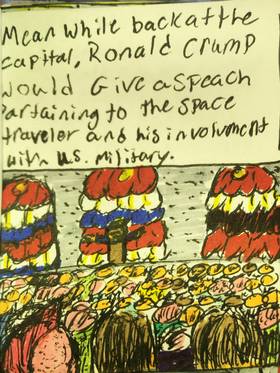 Mean while back at the
capital, Ronald Crump
Would Give a speach
Partaining to the space
traveler and his involvment
with u.s. military.